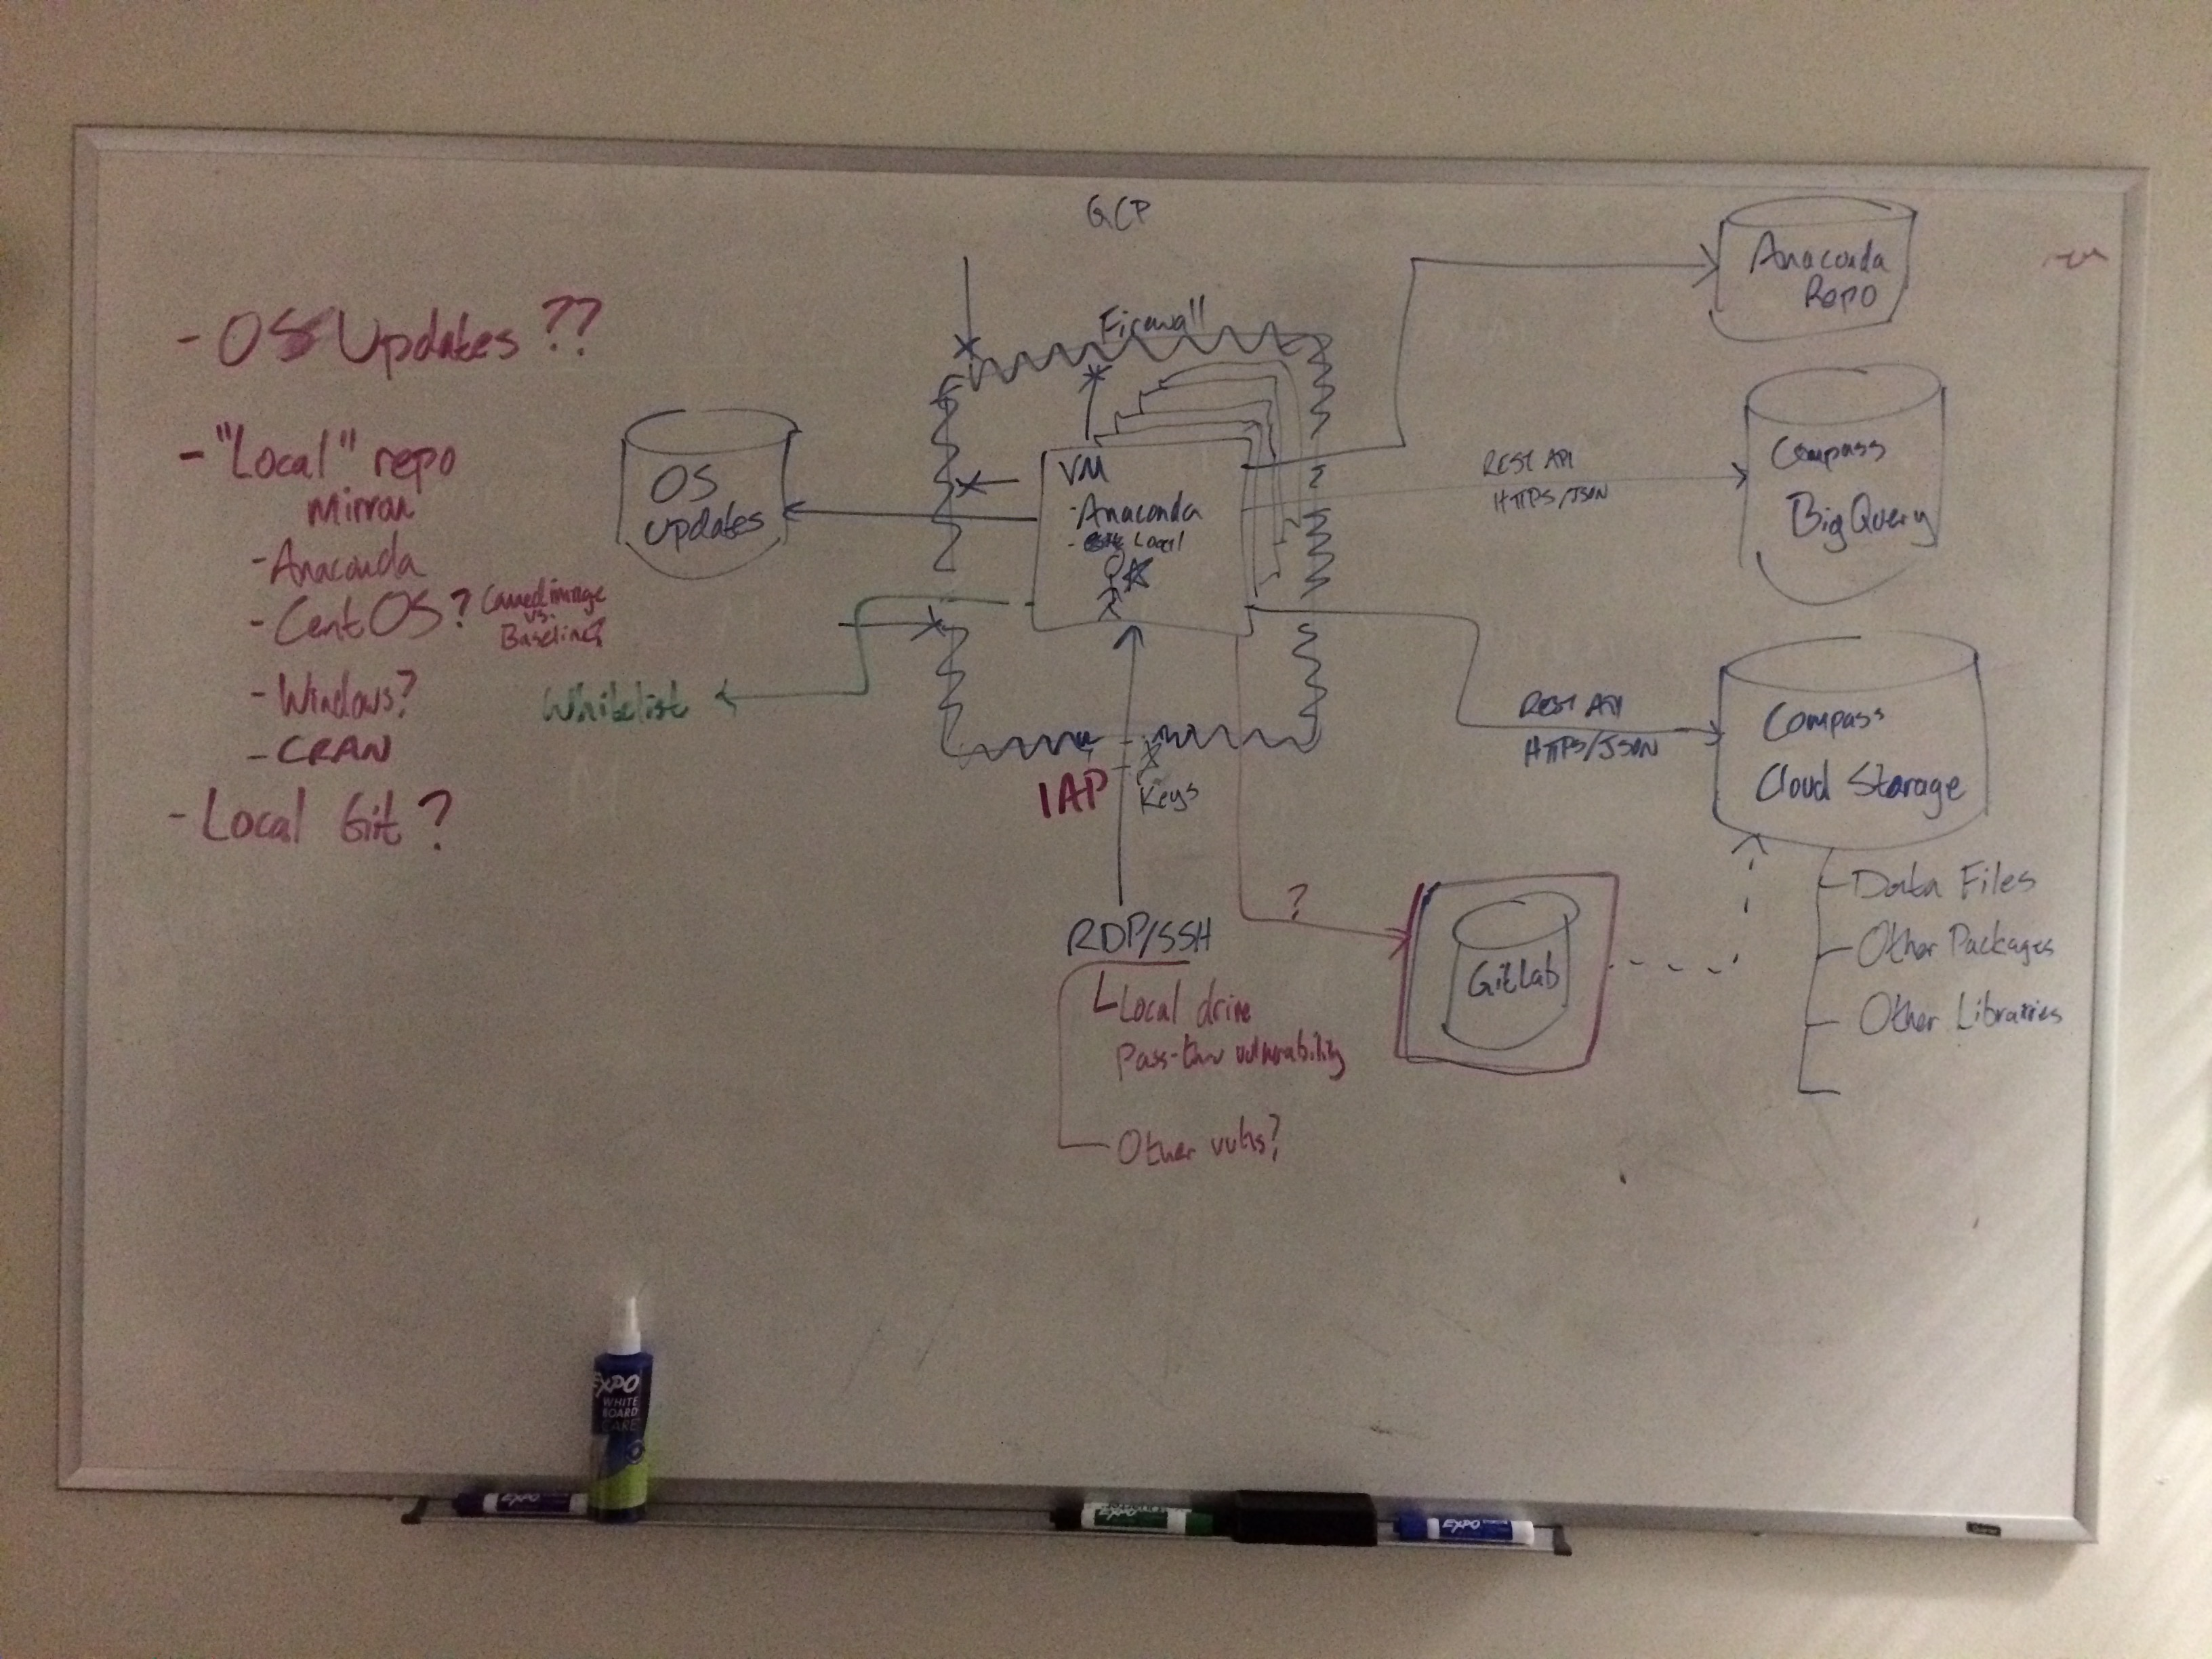 GCP
- OS Updates ??
- "Local" repo
Mirror
- Anaconda
- CentOS ? Canned image
vs.
Baseline?
- Windows?
- CRAN
- Local Git ?
OS
updates
Whitelist
Firewall
VM
- Anaconda
- Local
IAP
Keys
RDP/SSH
Local drive
Pass-thru vulnerability
Other vulns?
?
GitLab
Anaconda
Repo
REST API
HTTPS/JSON
Compass
BigQuery
REST API
HTTPS/JSON
Compass
Cloud Storage
Data Files
Other Packages
Other Libraries
EXPO
WHITE
BOARD
CARE
EXPO
EXPO
EXPO